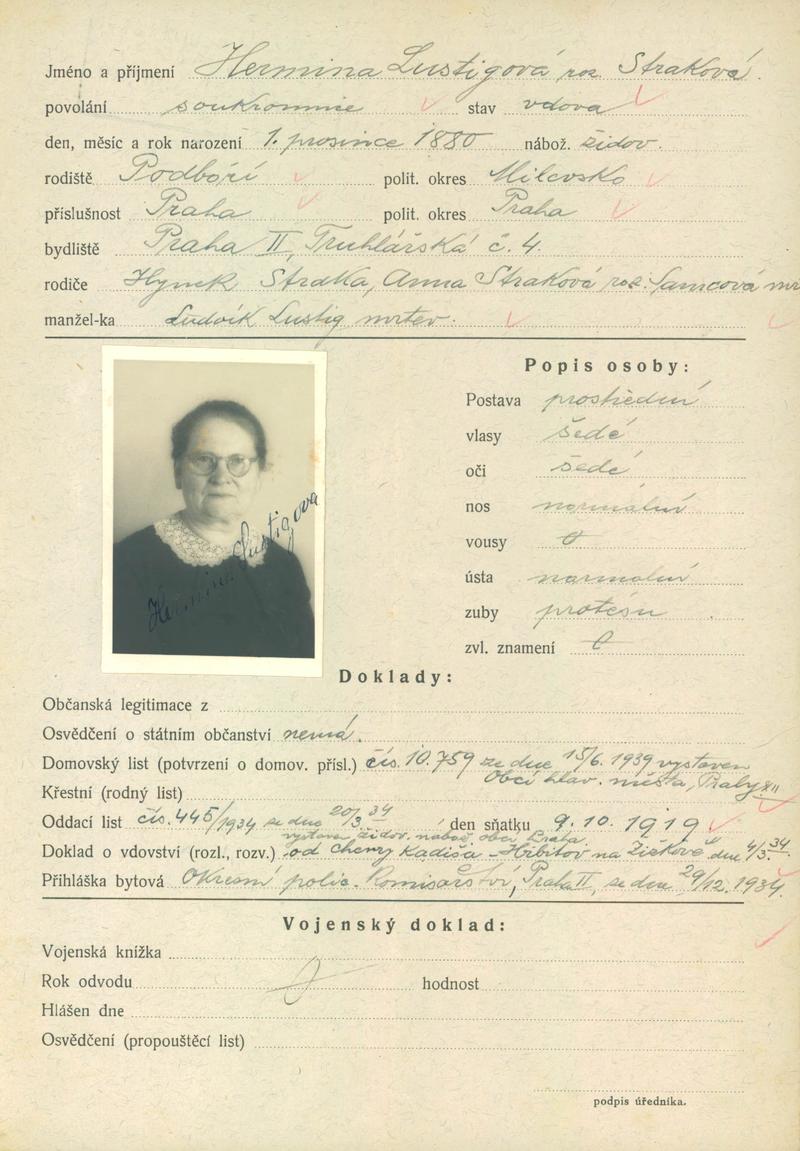 Jméno a příjmení Hermina Lustigová roz. Straková.
povolání soukromnice stav vdova
den, měsíc a rok narození 1. prosince 1880 nábož. židov.
rodiště Podboří polit. okres Milevsko
příslušnost Praha polit. okres Praha
bydliště Praha II, Truhlářská č. 4.
rodiče Hynek Straka, Anna Straková roz. Samcová mr
manžel-ka Ludvík Lustig mrtev.
Popis osoby:
Postava prostřední
vlasy šedé
oči šedé
nos normální
vousy 0
ústa normální
zuby protésu
zvl. znamení 0
Hermina Lustigova
Doklady:
Občanská legitimace z
Osvědčení o státním občanství nemá.
Domovský list (potvrzení o domov. přísl.) čís. 10.759 ze dne 15/6. 1939 vystaven
Obcí hlav. města, Prahy XII
Křestní (rodný list)
Oddací list čís. 445/1934 ze dne 20/3.34 den sňatku 9.10.1919
vystav. židov. nábož. obcí Praha.
Doklad o vdovství (rozl., rozv.) od Chevry Kadiša - Hřbitov na Žižkově dne 4/3.34.
Přihláška bytová Okresní polic. Komisařství, Praha II, ze dne 29/12. 1934.
Vojenský doklad:
Vojenská knížka
Rok odvodu hodnost
Hlášen dne
Osvědčení (propouštěcí list)
podpis úředníka.